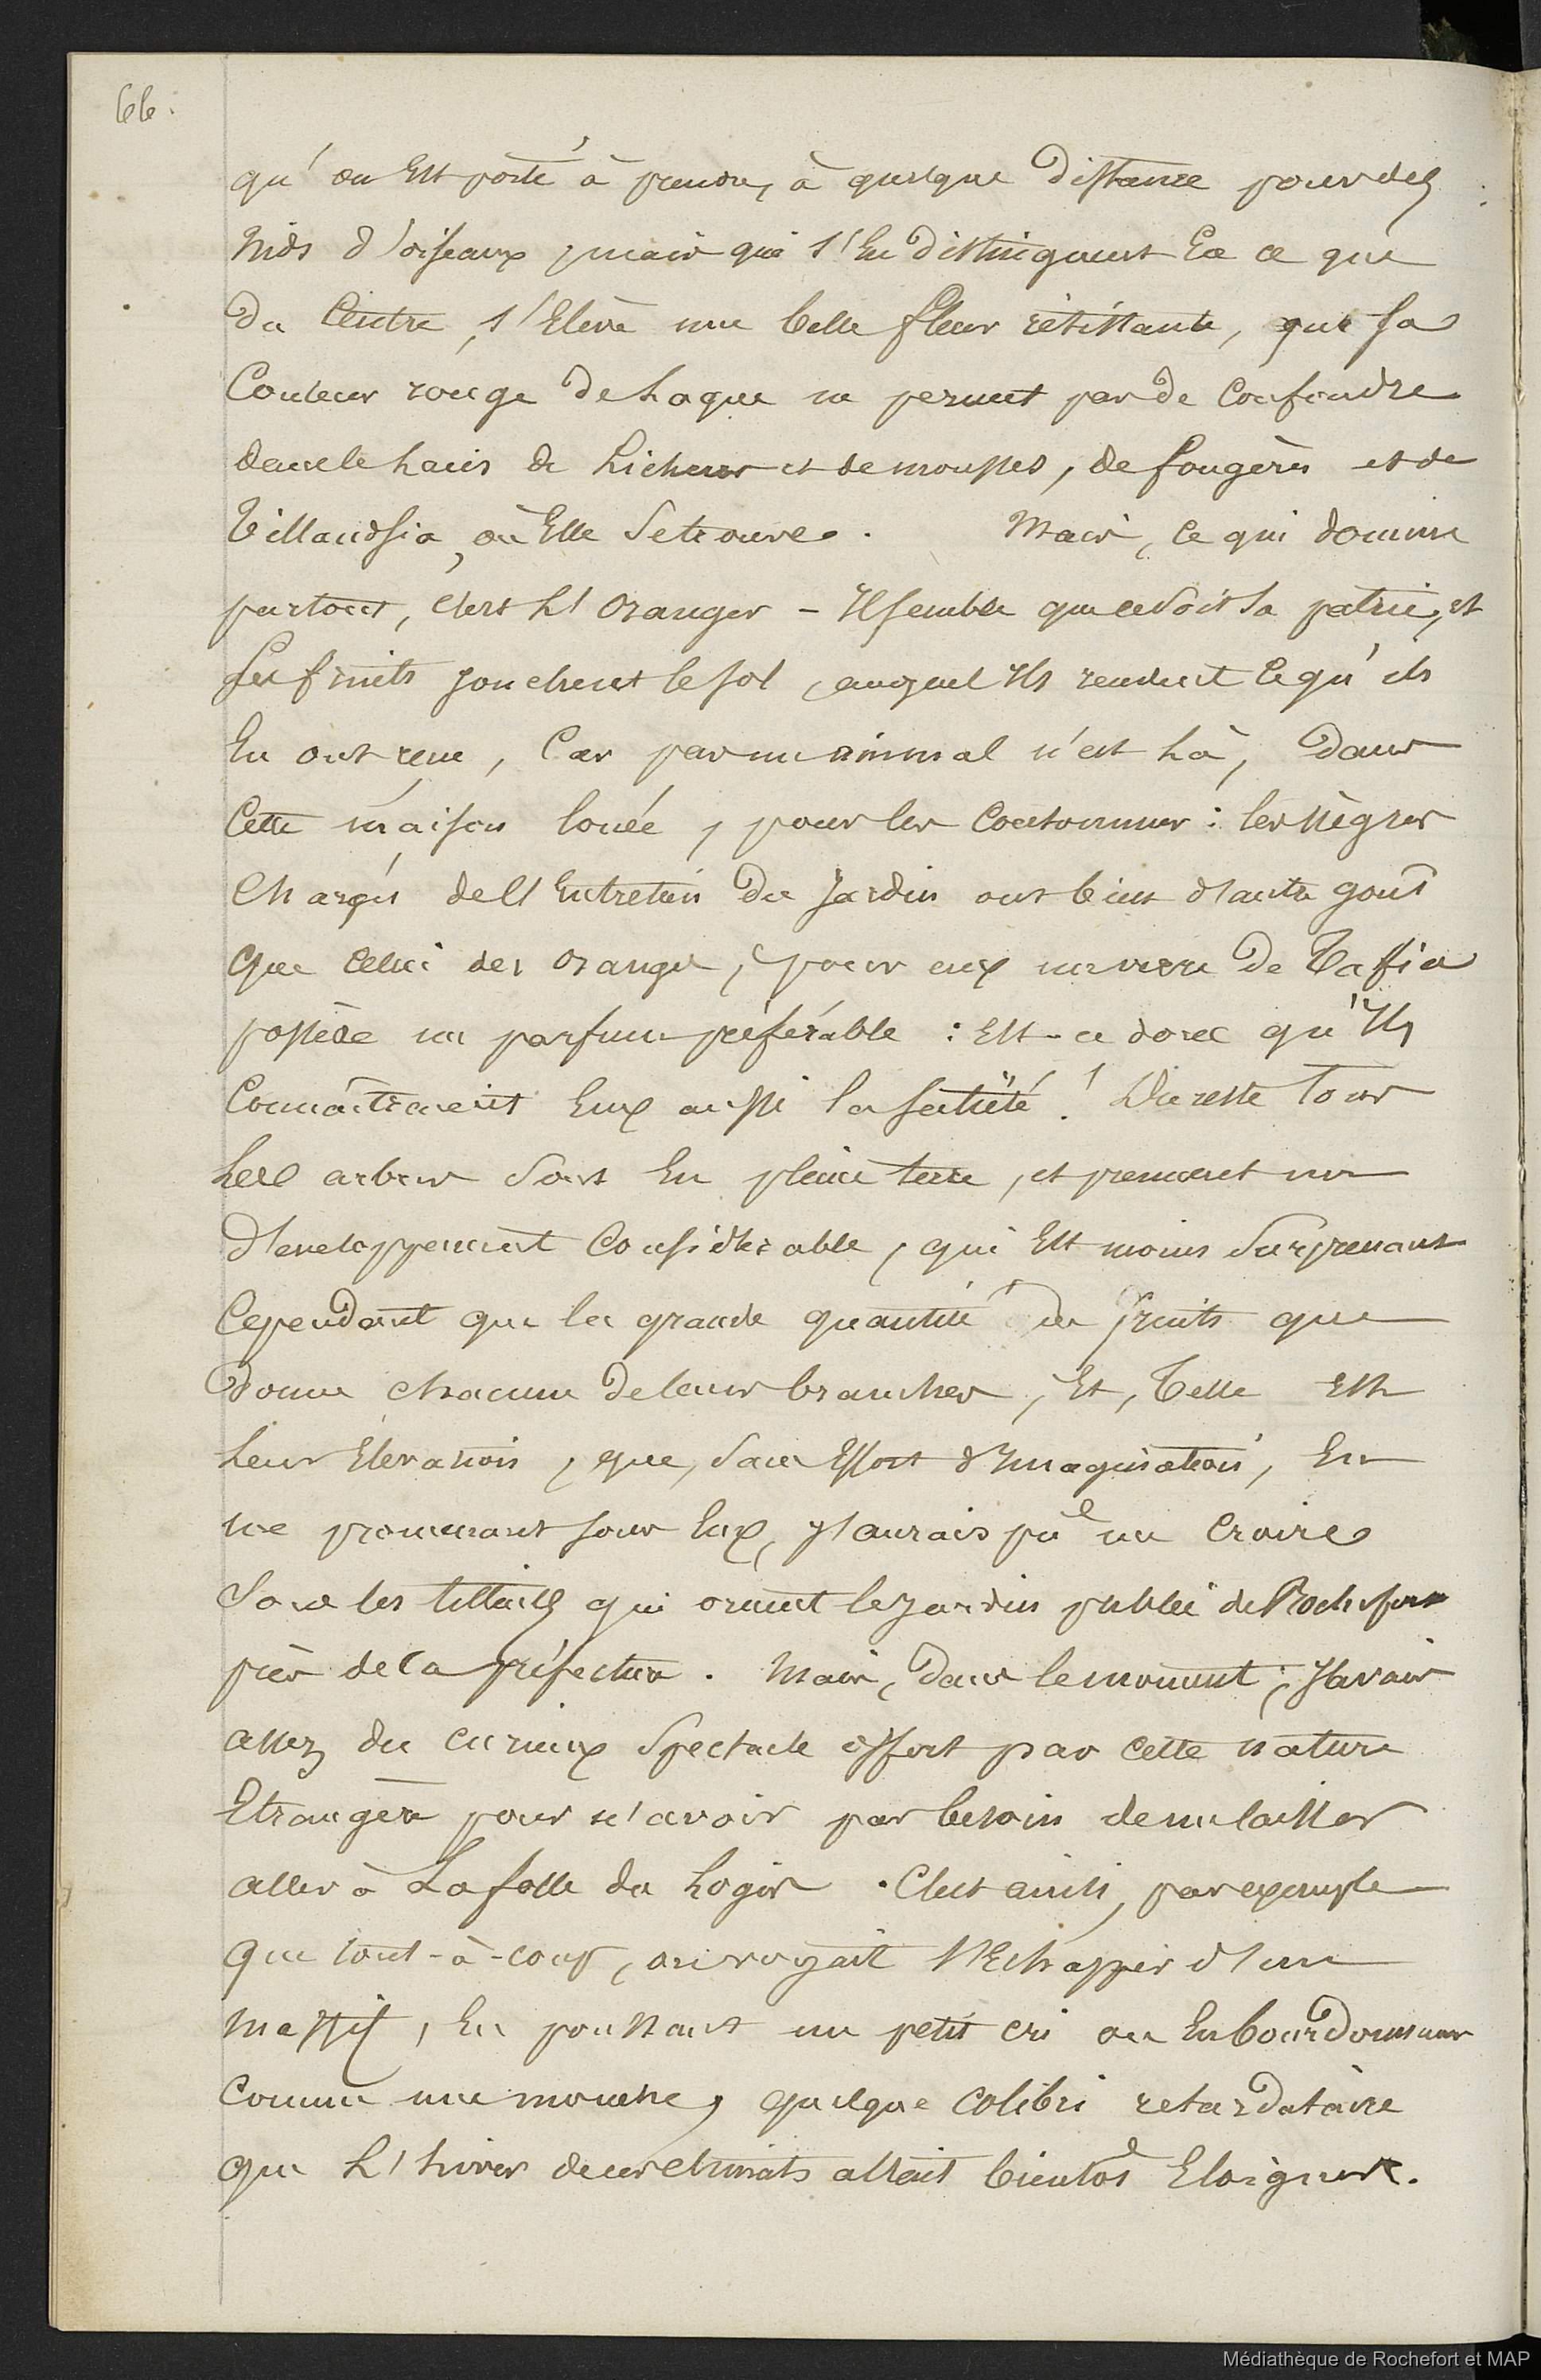 66.
qu'on Est porté à prendre, à quelque distance pour des
Nids d'oiseaux, mais qui s'En distinguent En ce que
Du Centre, s'Elève une belle fleur résistante, que sa
Couleur rouge de Laque ne permet pas de Confondre
dans le hauts de Lichens et de mousses, de fougères et de
Tillandsia, où Elle se trouve. Mais, ce qui domine
partout, c'est L'oranger - Il semble que ce soit sa patrie, et
ses fruits jonchent le sol, auquel Ils rendent ce qu'ils
En ont reçu, Car pas un animal n'est Là, Dans
Cette maison louée, pour les Consommer : les Nègres
Chargés de l'Entretien Du Jardin ont bien d'autre goût
que Celui des oranges, pour eux un verre De Taffia
possède un parfum préférable : Est-ce donc qu'Ils
Connaîtraient Eux aussi la satiété ! Du reste Tous
Les arbres sont En pleine terre, et prennent un
développement Considérable, qui Est moins surprenant
Cependant que la grande quantité de fruits que
Donne chacune de leurs branches, Et, Telle Est
Leur Elévation, que, sans Effort d'Imagination, En
me promenant sous Eux, J'aurais pû me Croire
sous les tilleuls qui ornent le Jardin public de Rochefort
près de la préfecture. Mais, Dans le moment, J'avais
assez du curieux spectacle offert par cette nature
Etrangère pour n'avoir pas besoin de me laisser
aller à La folle du Logis. C'est ainsi, par exemple
que tout-à-coup, on voyait s'Echapper d'un
massif, En poussant un petit cri ou En bourdonnant
Comme une mouche, quelque Colibri retardataire
que L'hiver de ces climats allait bientôt Eloigner.
Médiathèque de Rochefort et MAP